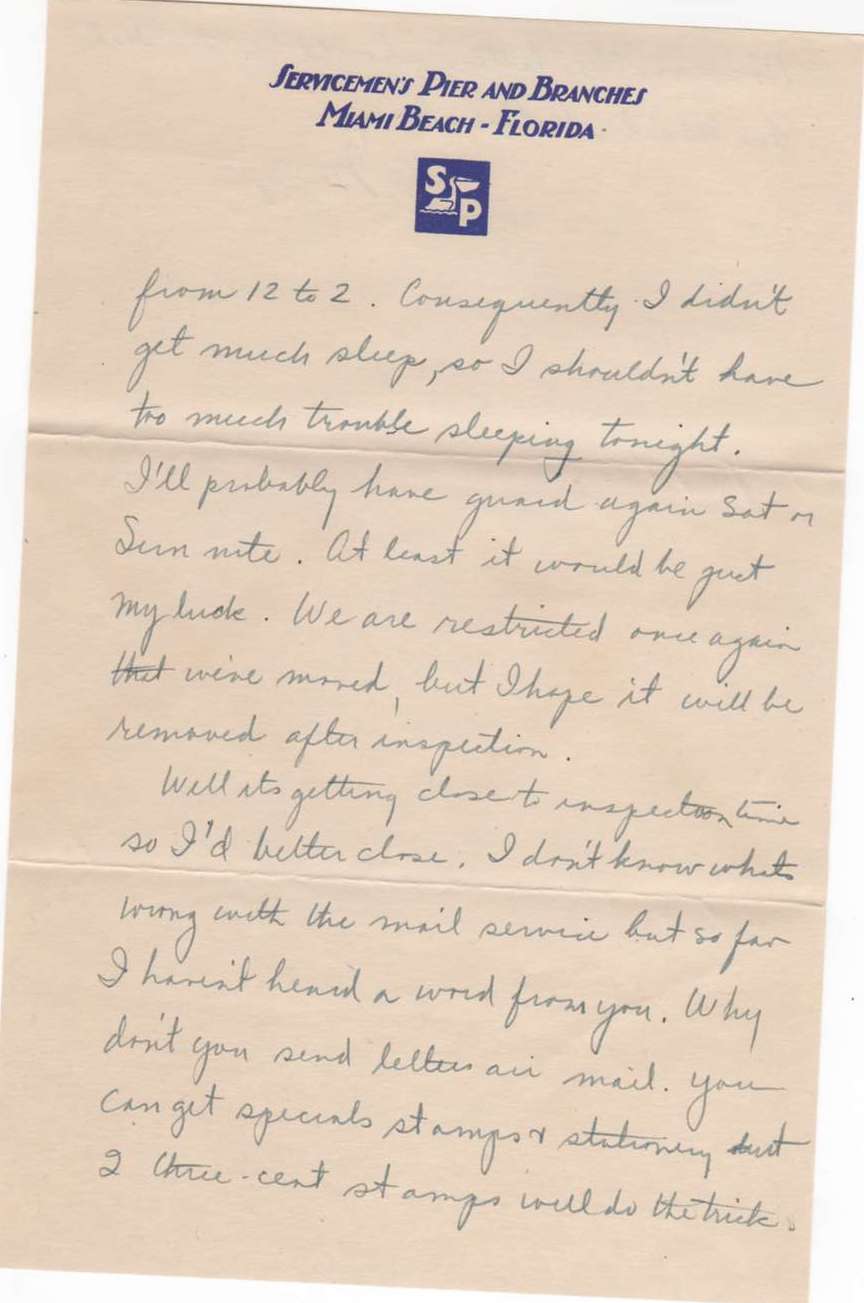 SERVICEMEN'S PIER AND BRANCHES
MIAMI BEACH - FLORIDA
S P
from 12 to 2. Consequently I didn't
get much sleep, so I shouldn't have
too much trouble sleeping tonight.
I'll probably have guard again Sat or
Sun nite. At least it would be just
my luck. We are restricted once again
that we've moved, but I hope it will be
removed after inspection.
Well its getting close to inspection time
so I'd better close. I don't know whats
wrong with the mail service but so far
I haven't heard a word from you. Why
don't you send letters air mail. You
can get specials stamps & stationery but
2 three-cent stamps will do the trick.